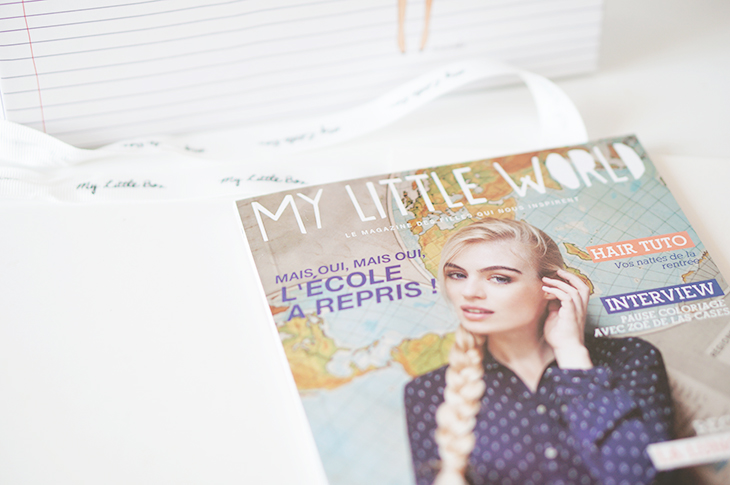 My Little Box
My Little Box
MY LITTLE WORLD
LE MAGAZINE DES FILLES QUI NOUS INSPIRENT
MAIS OUI, MAIS OUI,
L'ÉCOLE
A REPRIS !
HAIR TUTO
Vos nattes de la
rentrée
INTERVIEW
PAUSE COLORIAGE
AVEC ZOÉ DE LAS CASES